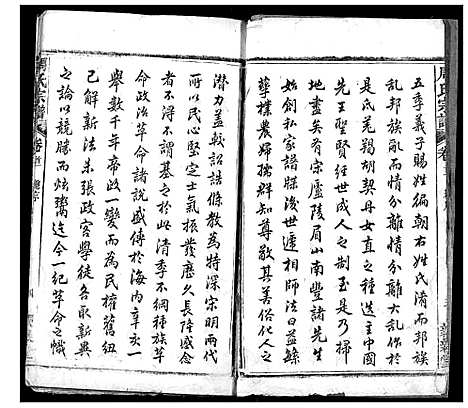 五季義子賜姓徧朝右姓氏淆而邦族
亂邦族亂而情分離情分離大亂作於
是氐羌鞨胡契丹女直之種迭主中國
先王憂民經世成人之制至是乃掃
地盡矣有宋廬陵眉山南豐諸先生
起家譜牒後世遞相師法日益鯀
華樸農婦摭群有其美俗化人之
潛力蓋較詔誥條教為特深宋明兩代
所以民心堅定士氣振發歷久長隆盛念
者不得不謂基之於此清季不綱種族革
命政治革命諸說盛傳於海內辛亥一
舉數千年帝政一變而為民權舊紐
已解新法未張政客學徒各最新典
之論以競勝而炫矞迄今一紀革命之幟
周氏宗譜 卷首
周氏宗譜 卷首